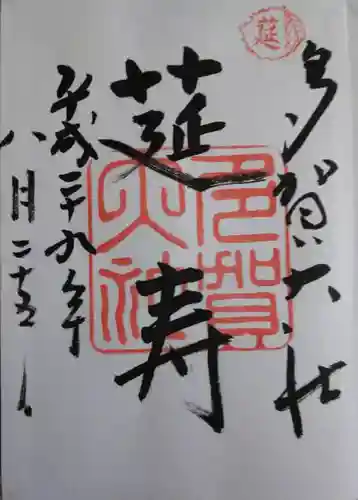 莚
多賀大社
莚寿
多賀
大神
平成二十九年
八月二十五日